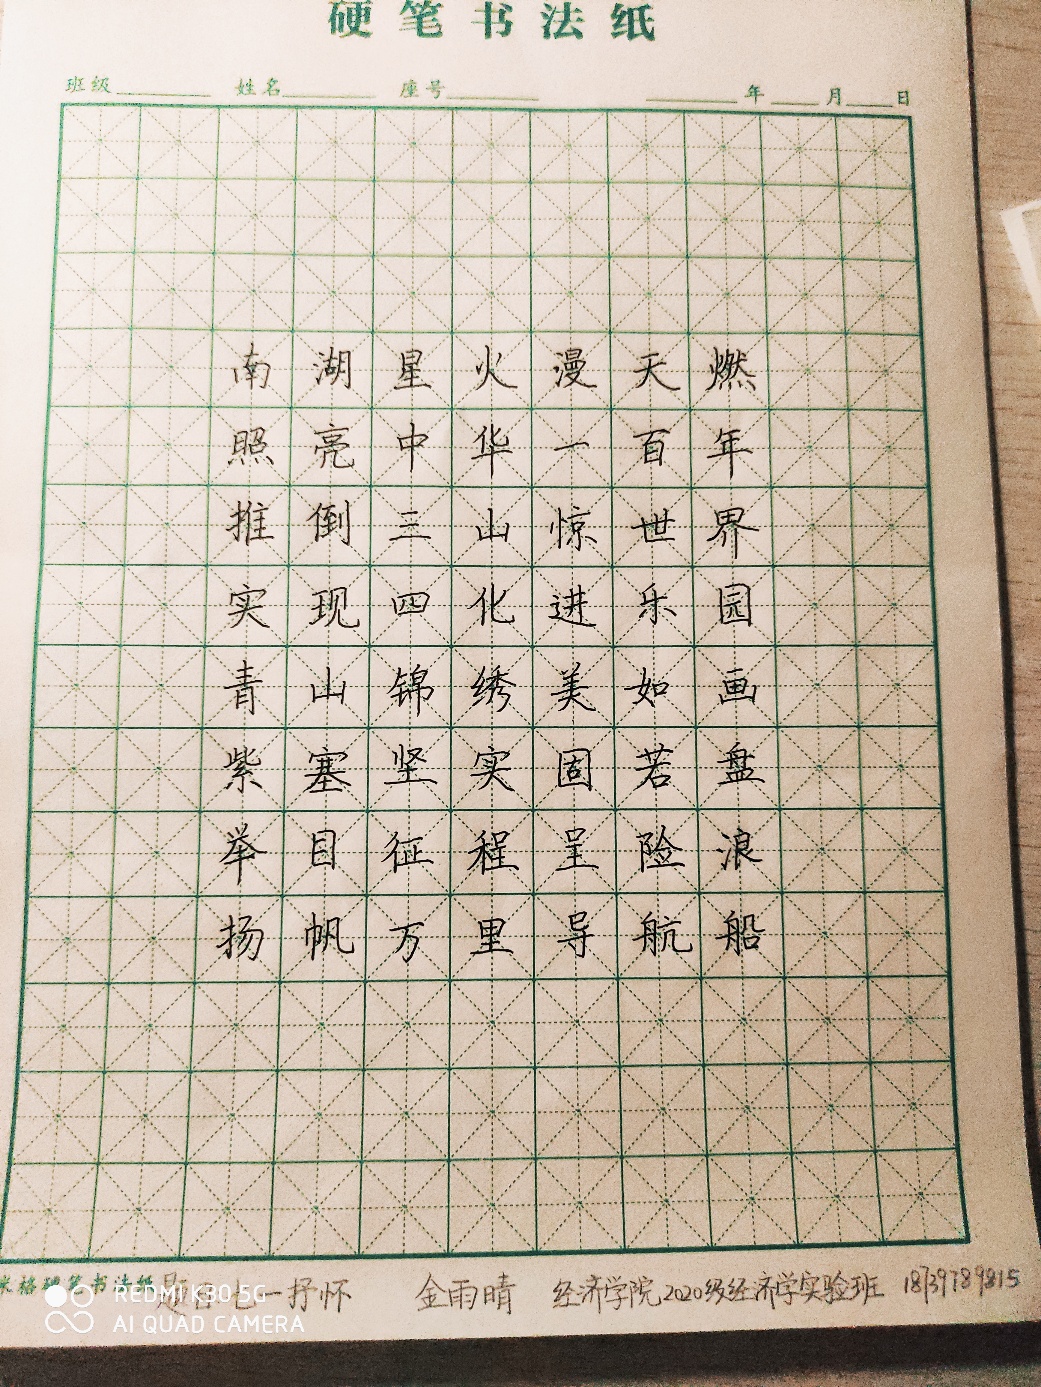 硬笔书法纸
班级 姓名 座号 年 月 日
南湖星火漫天燃
照亮中华一百年
推倒三山惊世界
实现四化进乐园
青山锦绣美如画
紫塞坚实固若盘
举目征程呈险浪
扬帆万里导航船
米格硬笔书法纸
七一抒怀 金雨晴 经济学院2020级经济学实验班 18739789815
REDMI K30 5G
AI QUAD CAMERA